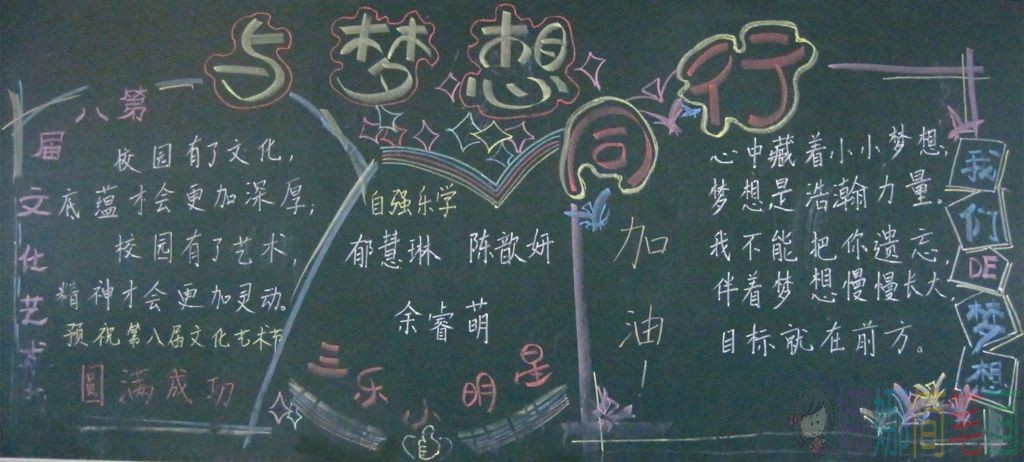 与梦想同行
第八届文化艺术节
校园有了文化，
底蕴才会更加深厚；
校园有了艺术，
精神才会更加灵动。
预祝第八届文化艺术节
圆满成功
自强乐学
郁慧琳 陈歆妍
余睿萌
三乐小明星
加油
心中藏着小小梦想，
梦想是浩瀚力量。
我不能把你遗忘，
伴着梦想慢慢长大，
目标就在前方。
我们DE梦想